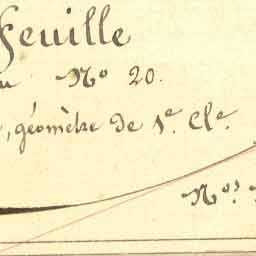 feuille
u No 20.
, géomètre de 1e. Cle.
Nos.